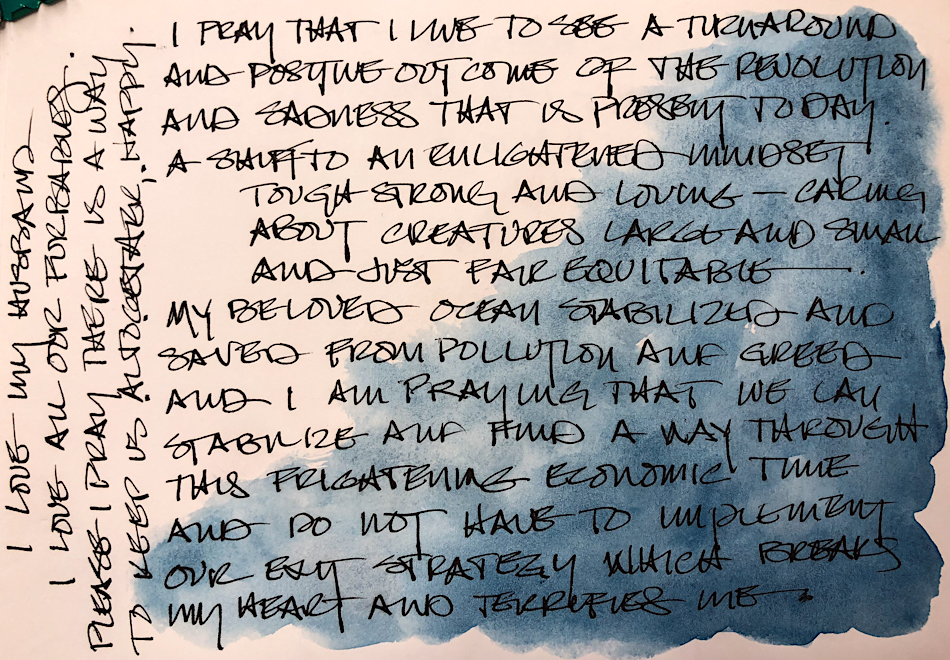 I PRAY THAT I LIVE TO SEE A TURNAROUND
AND POSITIVE OUTCOME OF THE REVOLUTION
AND SADNESS THAT IS PRESENT TODAY.
A SHIFT TO AN ENLIGHTENED MINDSET
TOUGH STRONG AND LOVING — CARING
ABOUT CREATURES LARGE AND SMALL
AND JUST FAIR EQUITABLE —.
MY BELOVED OCEAN STABILIZED AND
SAVED FROM POLLUTION AND GREED
AND I AM PRAYING THAT WE CAN
STABILIZE AND FIND A WAY THROUGH
THIS FRIGHTENING ECONOMIC TIME
AND DO NOT HAVE TO IMPLEMENT
OUR EXIT STRATEGY WHICH BREAKS
MY HEART AND TERRIFIES ME.
I LOVE MY HUSBAND
I LOVE ALL OUR FURBABIES.
PLEASE I PRAY THERE IS A WAY
TO KEEP US ALTOGETHER, HAPPY.